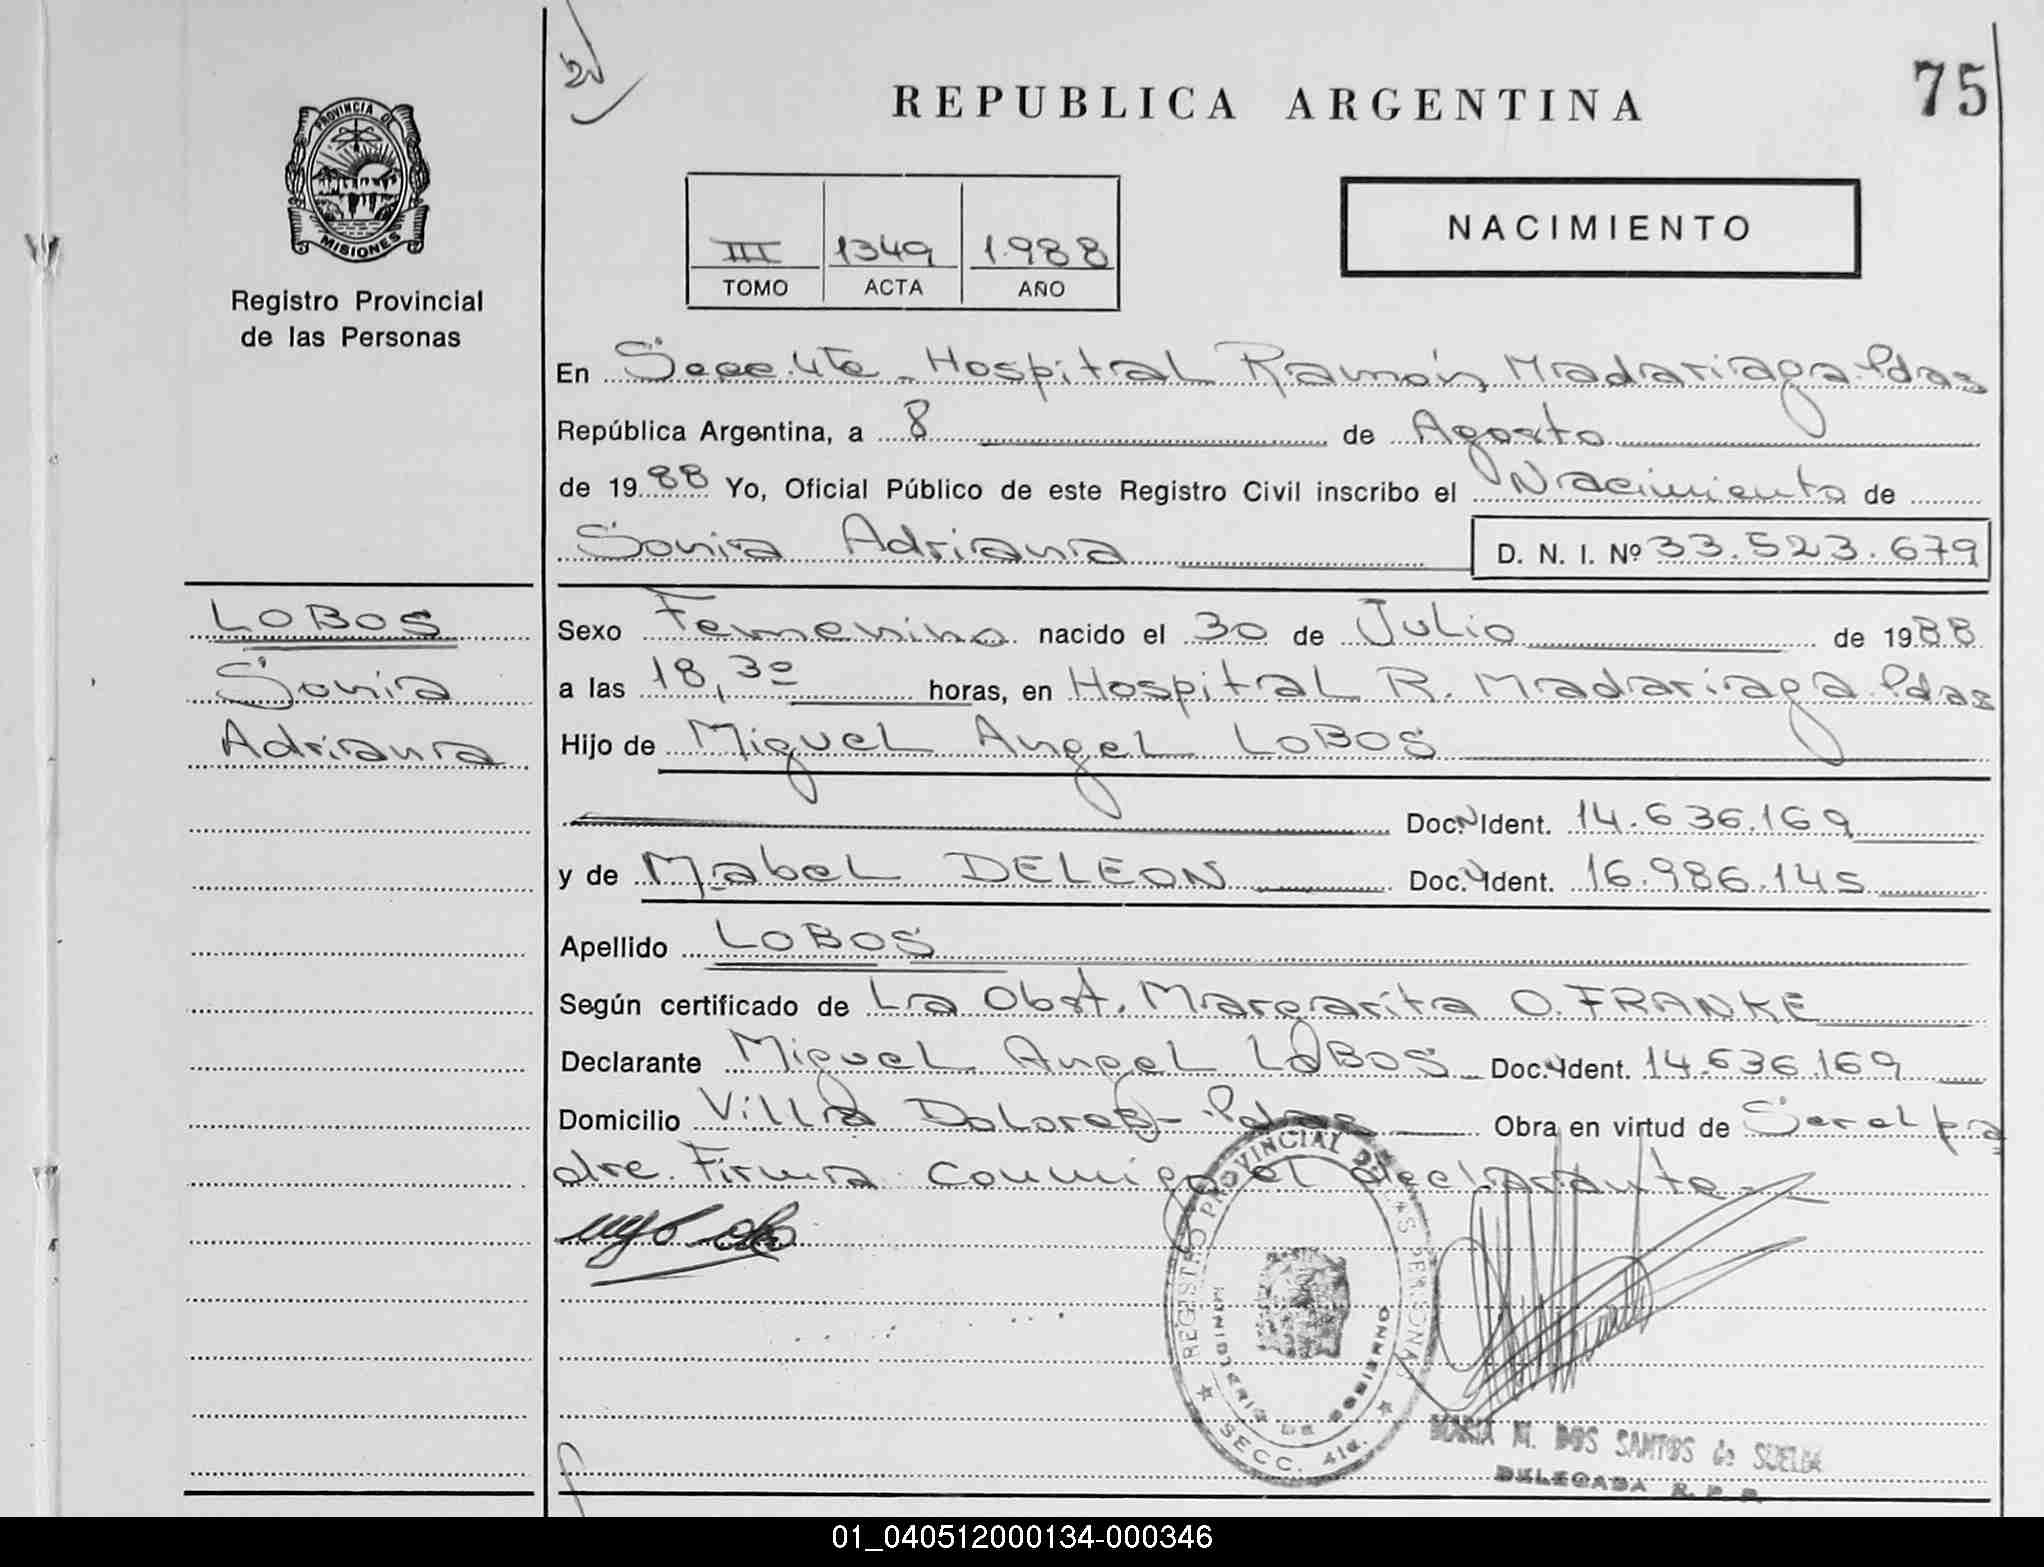 REPUBLICA ARGENTINA
75
PROVINCIA DE
MISIONES
Registro Provincial
de las Personas
III 1349 1.988
TOMO ACTA AÑO
NACIMIENTO
En Secc. 4ta - Hospital Ramón Madariaga. Pdas
República Argentina, a 8 de Agosto
de 1988 Yo, Oficial Público de este Registro Civil inscribo el Nacimiento de
Sonia Adriana D. N. I. Nº 33.523.679
LOBOS
Sonia
Adriana
Sexo Femenino nacido el 30 de Julio de 1988
a las 18,30 horas, en Hospital R. Madariaga. Pdas
Hijo de Miguel Angel LOBOS
Doc. N Ident. 14.636.169
y de Mabel DELEON Doc. Ident. 16.986.145
Apellido LOBOS
Según certificado de La Obst. Margarita O. FRANKE
Declarante Miguel Angel LOBOS Doc. Ident. 14.636.169
Domicilio Villa Dolores - Pdas Obra en virtud de Ser el pa
dre. Firma conmigo el declarante
REGISTRO PROVINCIAL DE LAS PERSONAS
MINISTERIO DE GOBIERNO
SECC. 4ta.
MARIA M. DOS SANTOS de
DELEGADA R. P. P.
01_040512000134-000346